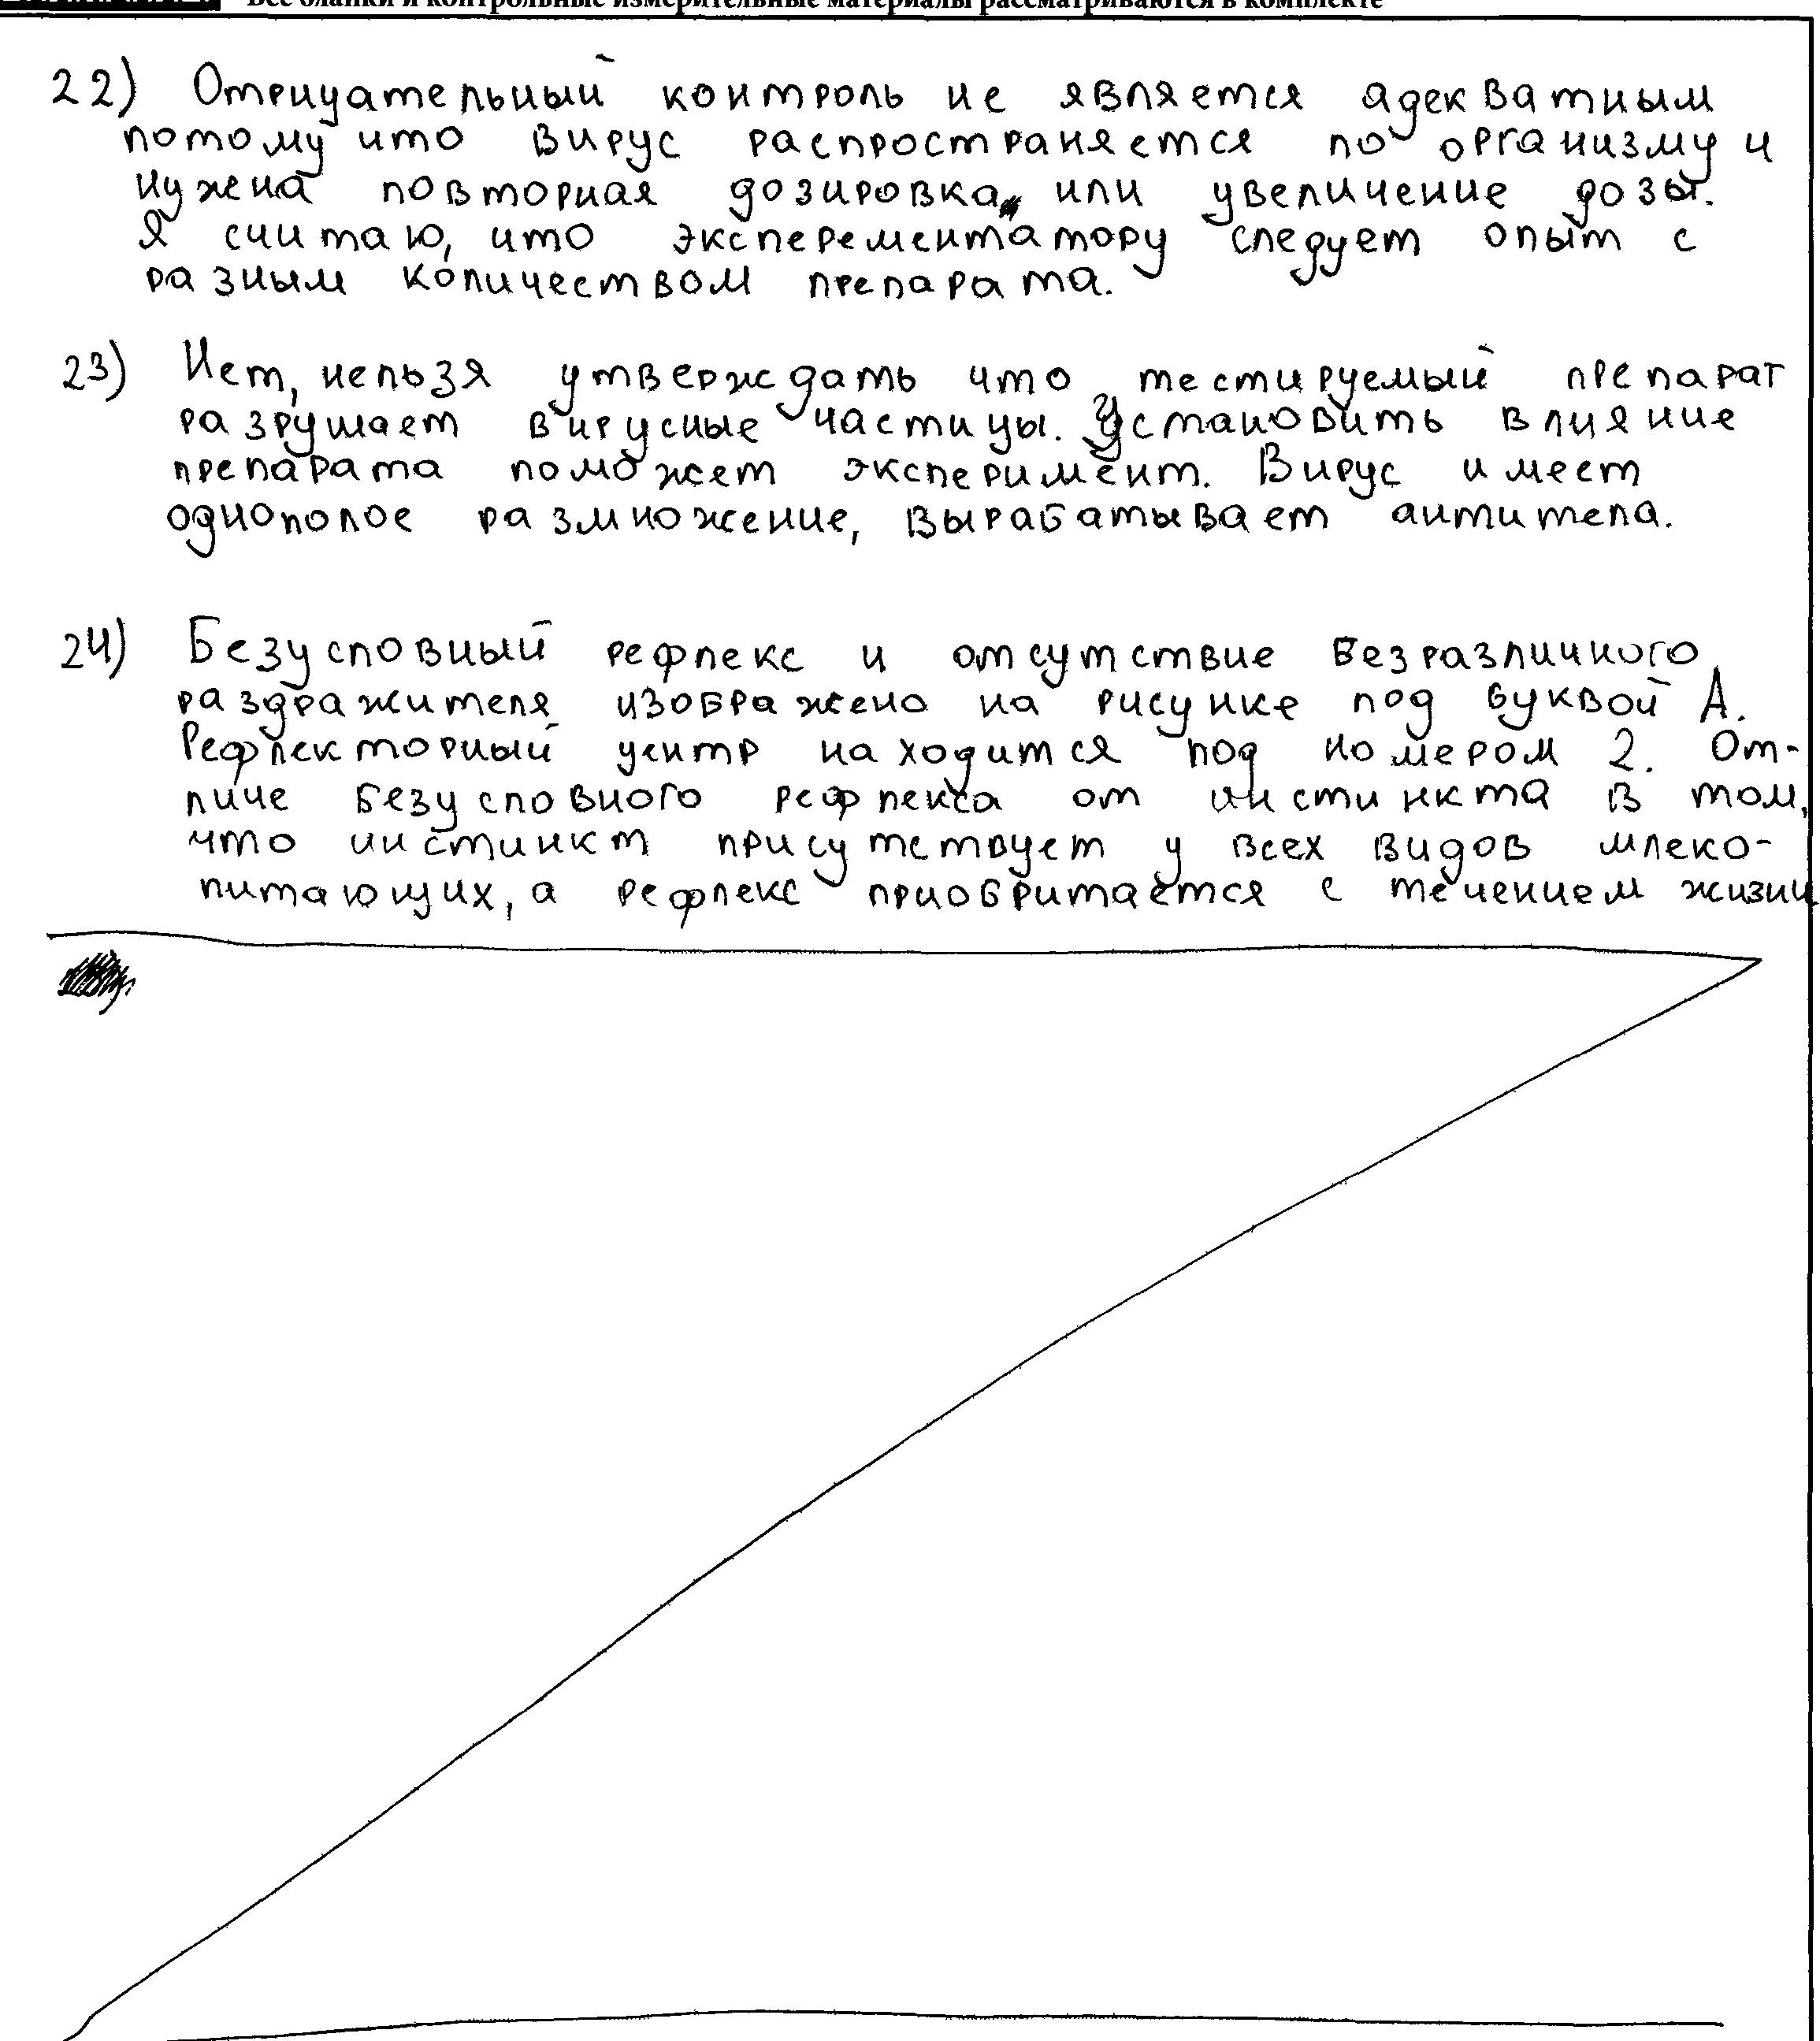 Все бланки и контрольные измерительные материалы рассматриваются в комплекте
22) Отрицательный контроль не является адекватным
потому что вирус распространяется по организму и
нужена повторная дозировка или увеличение дозы.
Я считаю, что эксперементатору следует опыт с
разным количеством препарата.
23) Нет, нельзя утверждать что тестируемый препарат
разрушает вирусные частицы. Установить влияние
препарата поможет эксперимент. Вирус имеет
однополое размножение, вырабатывает антитела.
24) Безусловный рефлекс и отсутствие безразличного
раздражителя изображено на рисунке под буквой А.
Рефлекторный центр находится под номером 2. От-
личе безусловного рефлекса от инстинкта в том,
что инстинкт присутствует у всех видов млеко-
питающих, а рефлекс приобритается с течением жизни